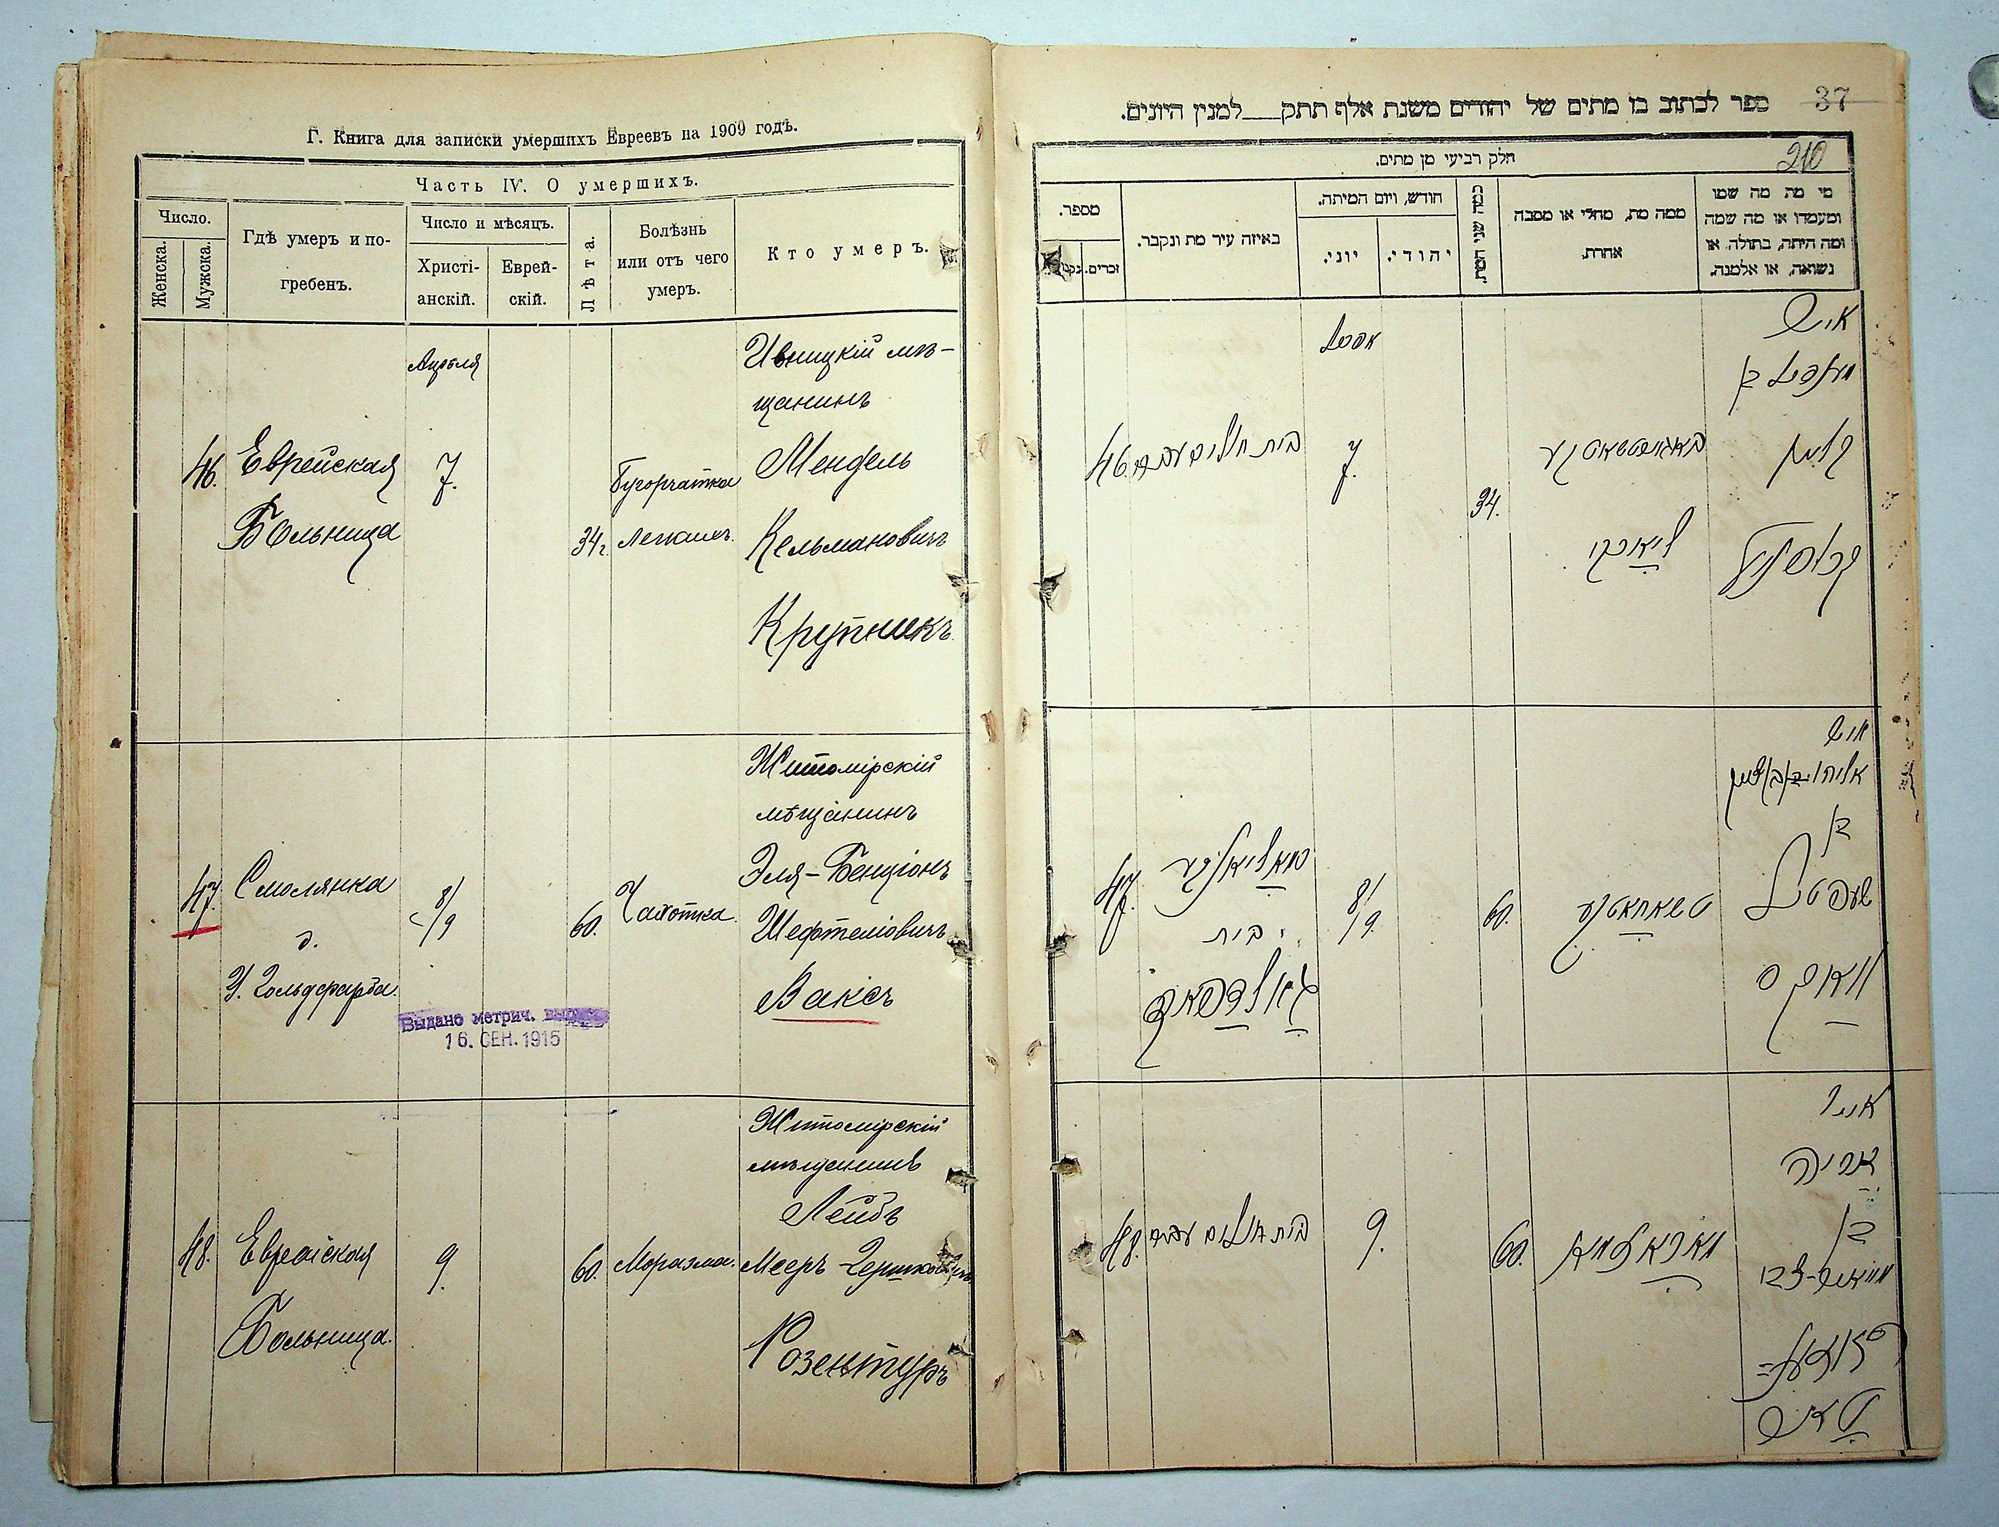 Г. Книга для записки умершихъ Евреевъ на 1909 годъ.
Часть IV. О умершихъ.
Число.
Женска.
Мужска.
Гдѣ умеръ и по-
гребенъ.
Число и мѣсяцъ.
Христі-
анскій.
Еврей-
скій.
Лѣта.
Болѣзнь
или отъ чего
умеръ.
Кто умеръ.
46.
Еврейская
Больница
Апрѣля
7.
34 г.
Бугорчатка
легкихъ.
Ивницкій мѣ-
щанинъ
Мендель
Кельмановичъ
Крупникъ.
47.
Смолянка
д.
У. Гольдфарба.
8/9
60.
Чахотка.
Житомірскій
мѣщанинъ
Эля-Бенціонъ
Шефтеліовичъ
Ваксъ
Выдано метрич.
16. СЕН. 1915
48.
Еврейская
Больница.
9.
60.
Маразма.
Житомірскій
мѣщанинъ
Лейбъ
Мееръ-Гершковичъ
37
ספר לכתוב בו מתים של יהודים משנת אלף תתק___למנין היונים.
210
חלק רביעי מן מתים.
מספר.
זכרים.
באיזה עיר מת ונקבר.
חודש, ויום המיתה.
יוני.
יהודי.
כמה שני המת.
ממה מת, מחלי או מסבה
אחרת.
מי מת מה שמו
ומעמדו או מה שמה
ומה היתה, בתולה או
נשואה, או אלמנה.
46.
בית חולים
7.
34.
איש
מענדיל בן
קלמן
47.
בית
8/9.
60.
איש
בן
שעפטיל
וואקס
48.
בית חולים
9.
60.
אריה
בן